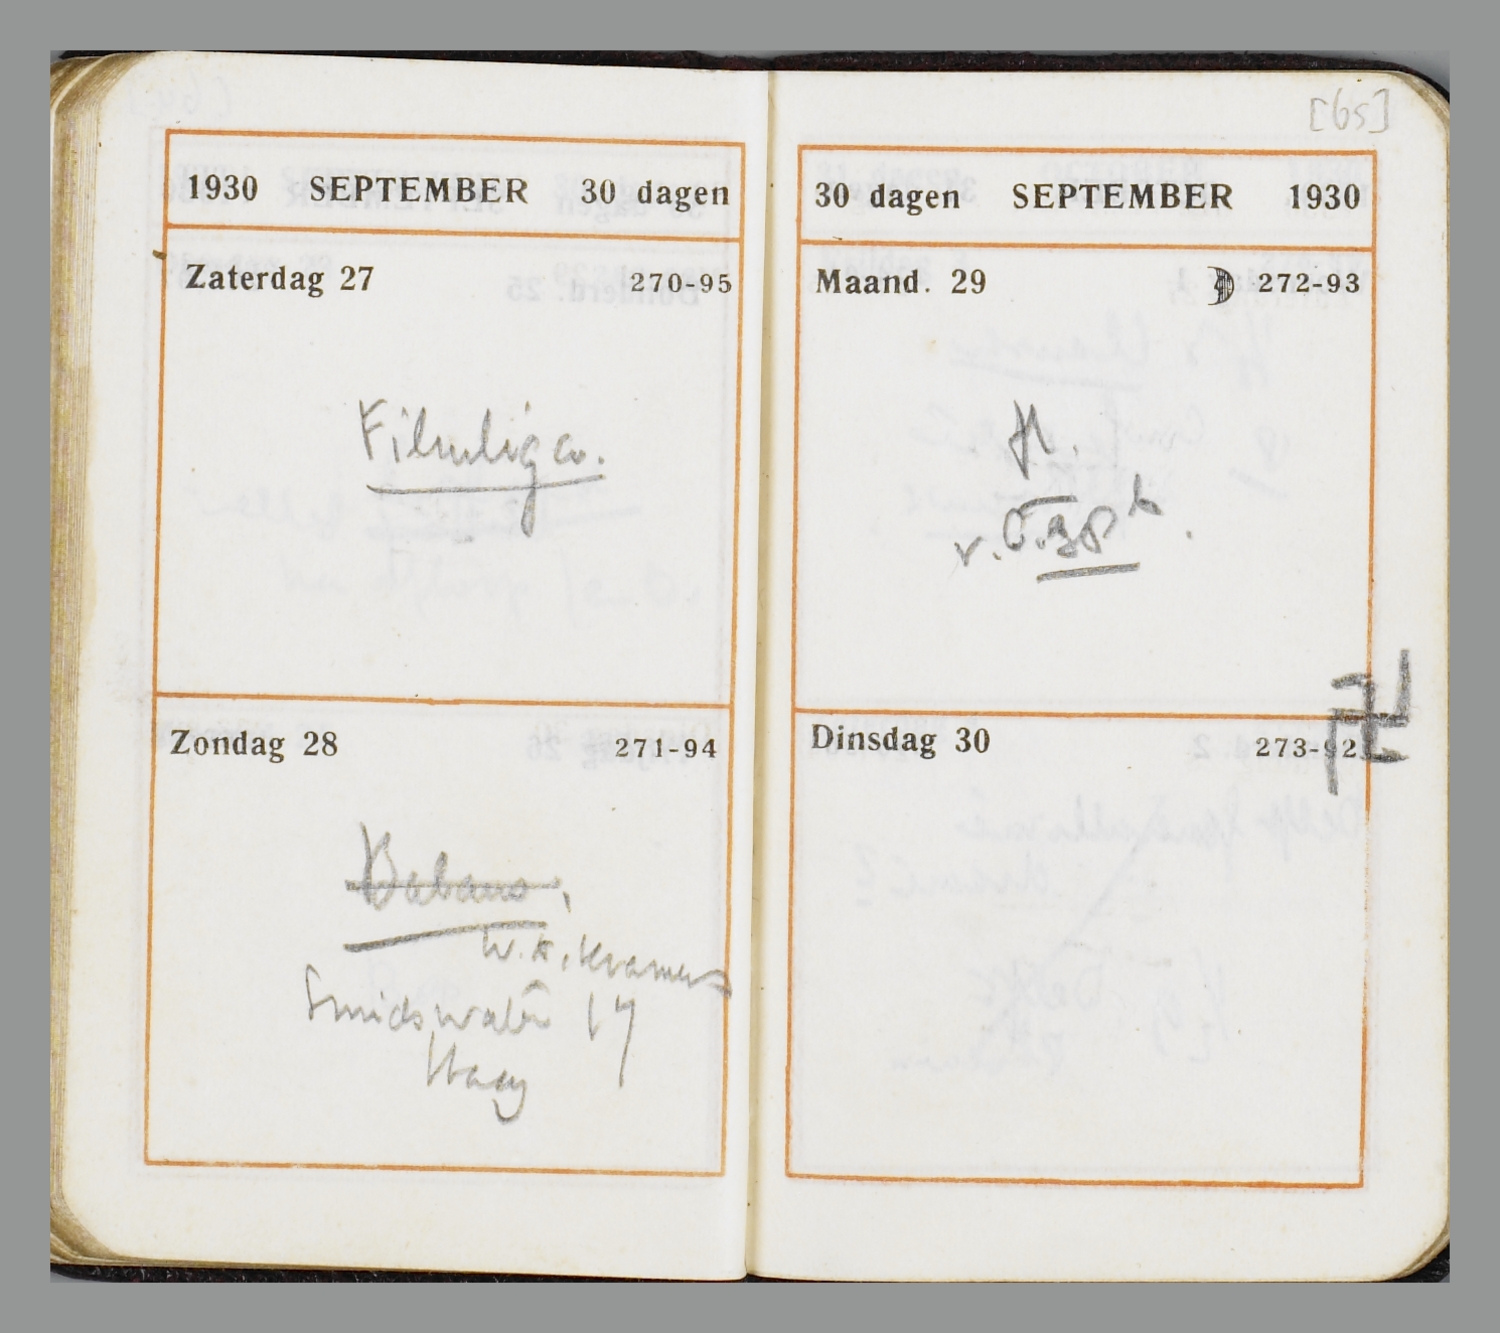 1930 SEPTEMBER 30 dagen
Zaterdag 27 270-95
Filmliga.
Zondag 28 271-94
W. K. Kramers
Smidswater 17
Haag
[65]
30 dagen SEPTEMBER 1930
Maand. 29 272-93
Dinsdag 30 273-92